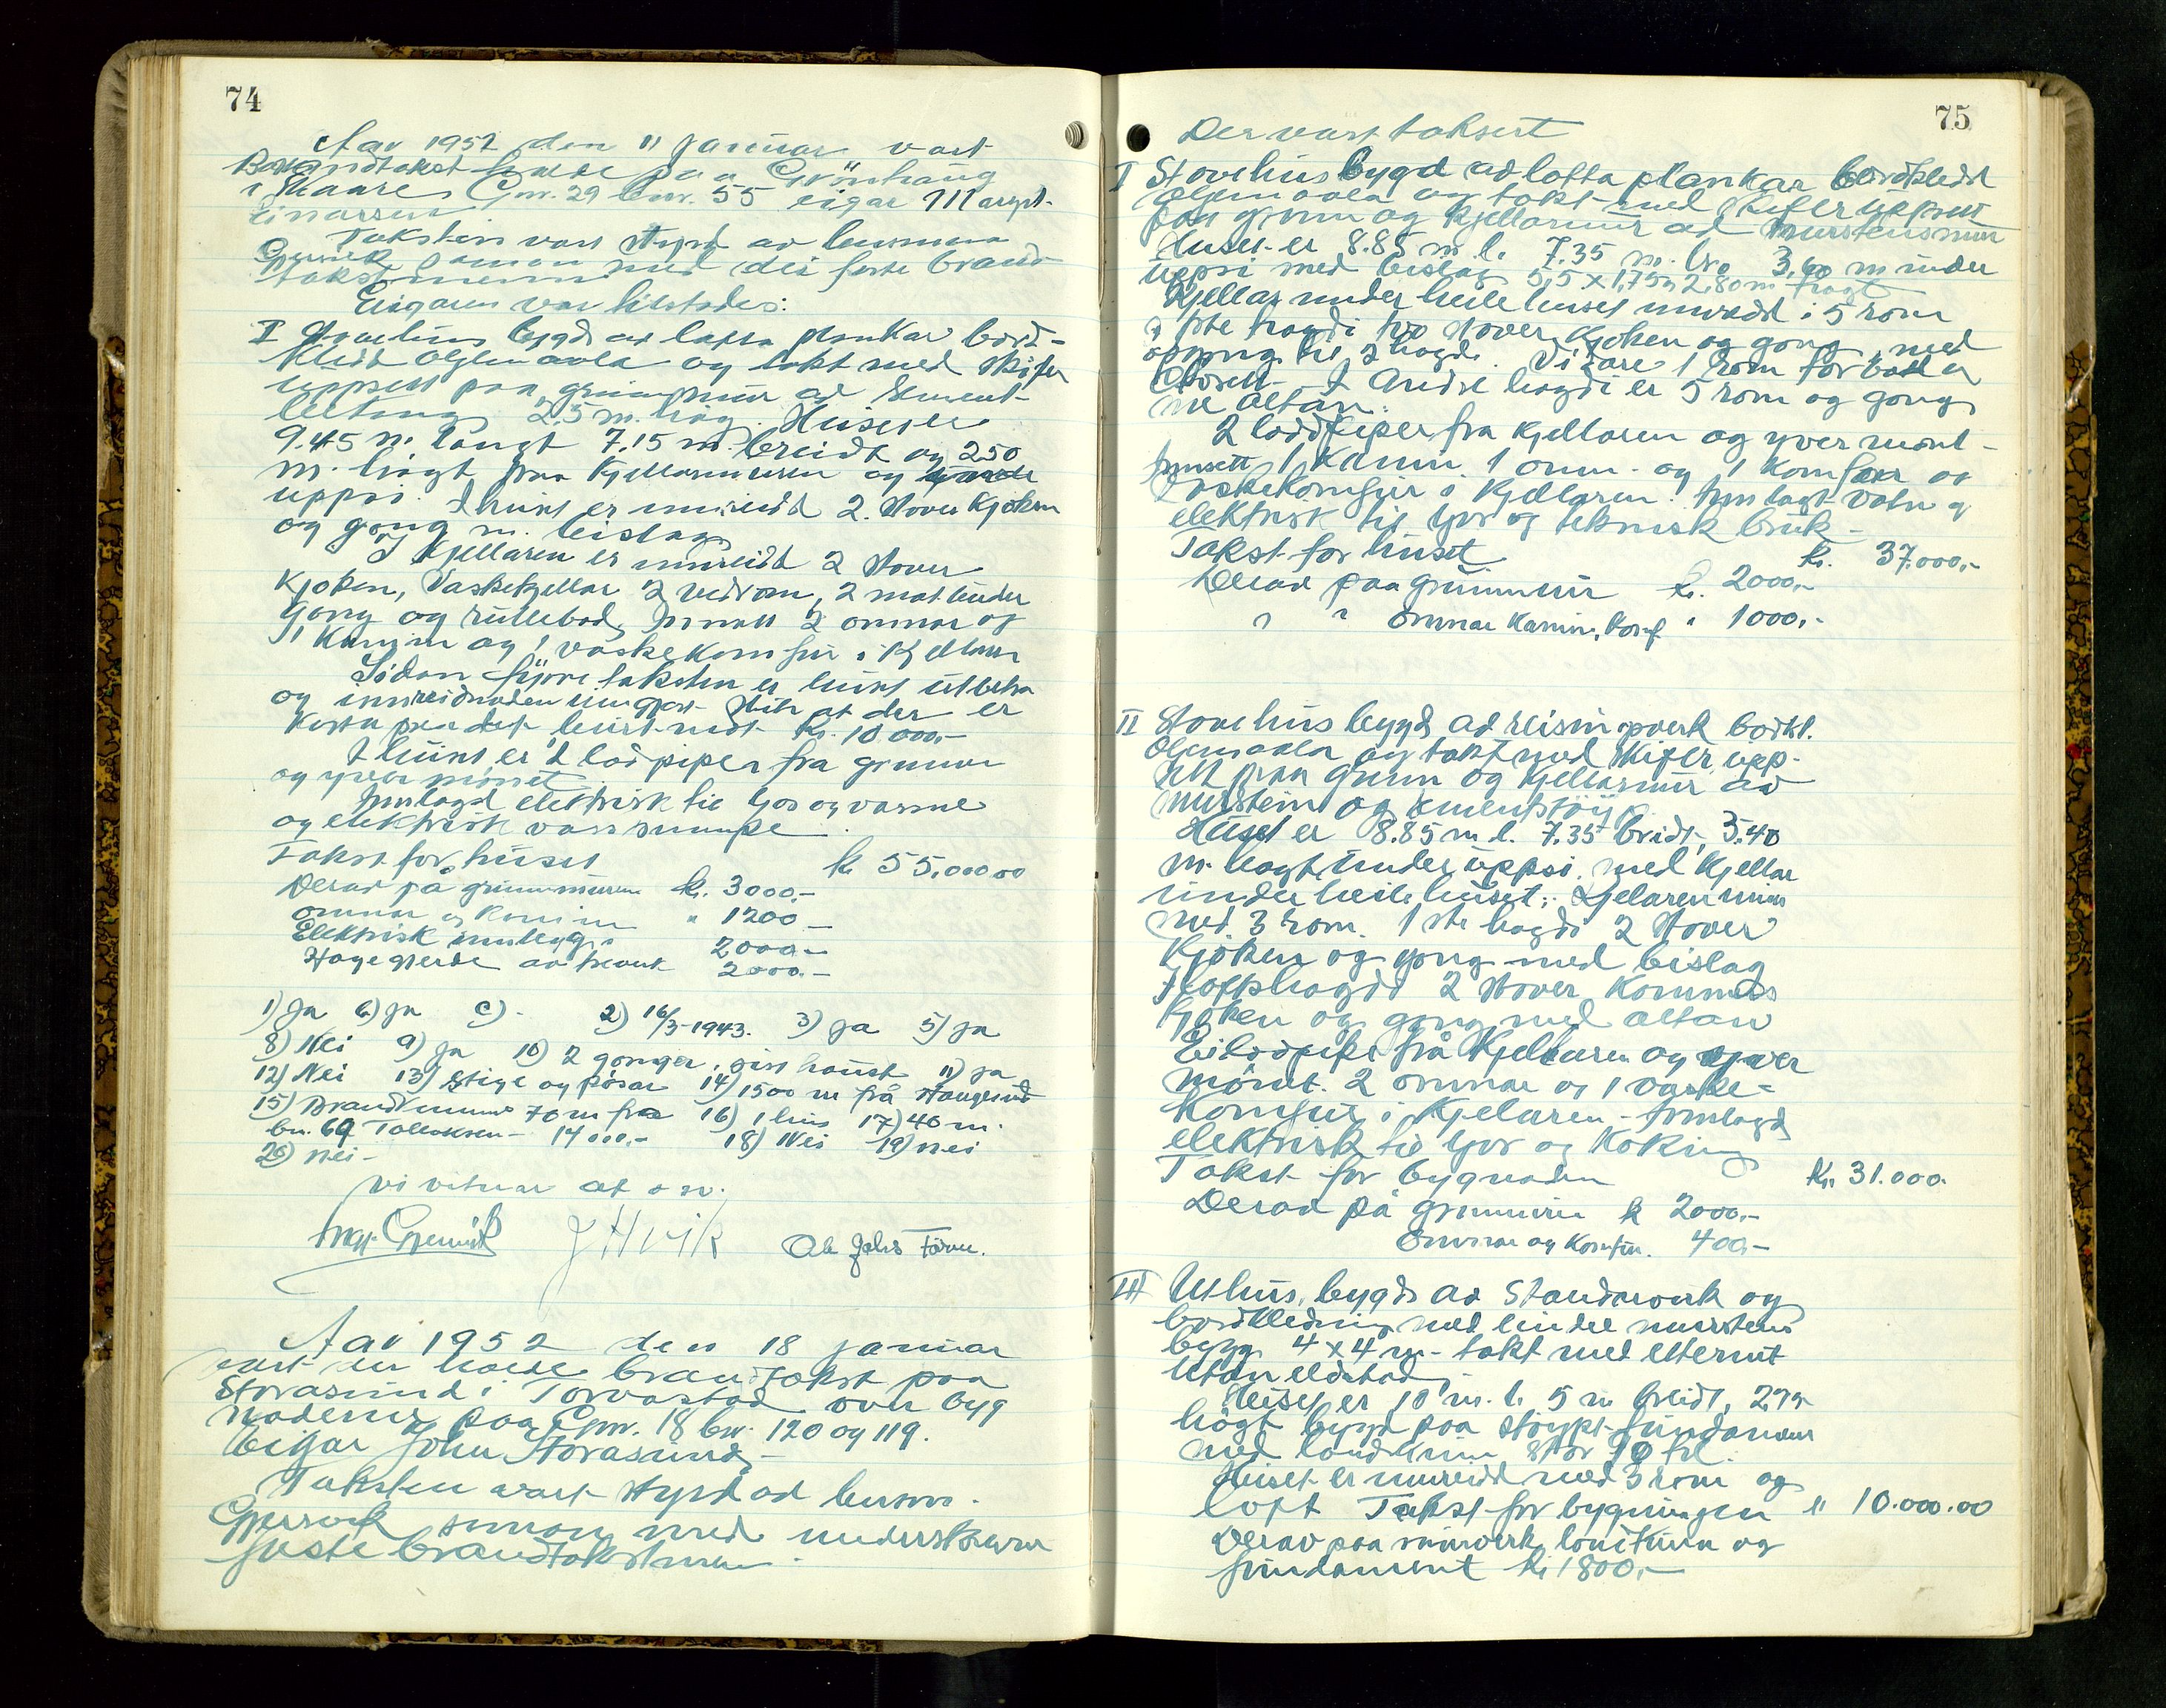 74
Aar 1952 den 11 januar vart
Brandtakst halde paa Grönhaug
i Skaare Gnr. 29 bnr. 55 eigar Margit
Einarsen
Taksten vart styrd av lensmann
Gjersvik saman med dei faste brand-
takstmenn
Eigaren var tilstades:
I Stovehus bygd av lafta plankar bord-
kledd oljemaala og takt med skifer
uppsett paa grunnmur av sement-
2.5 m. høg. Huset er
9.45 m. langt 7.15 m. breidt og 2.50
m. høgt fraa kjellarmuren og under
uppsi. I huset er innreidd 2. stover kjøken
og gong m. beislag
I kjellaren er innreidd 2 stover
kjøken, Vaskekjellar 2 vedrom, 2 matbuder
gong og rullebod. Innsett 2 omnar og
1 Kamin og 1 vaskekomfur i kjellaren
Sidan fyrre taksten er huset utbetra
og innreidnaden umgjort slik at der er
kosta paa det heile kr. 10 000,-
I huset er 2 lodpiper fra grunnen
og yver mønet
Innlagd elektrisk til ljos og varme
og elektrisk vasspumpe.
Takst for huset kr 55.000 00
Derav på grunnmuren kr. 3000,-
omnar og kamin " 1200 -
Elektrisk innlegg 2000.-
Hagegjerde av treverk 2000.-
1) Ja 6) ja c) - 2) 16/3-1943. 3) ja 5) ja
8) Nei 9) ja 10) 2 gonger, siss haust 11) ja
12) Nei 13) Stige og pøsar 14) 1500 m frå Haugesund
15) Brandkumme 70 m fra 16) 1 hus 17) 40 m.
bn. 69 Tolleksen - 14 000.- 18) Nei 19) nei
20) nei -
vi vitnar at o sv.
Ingv. Gjersvik J H Vik Ole Johs Førre.
Aar 1952 den 18 januar
vart der halde brandtakst paa
Storasund i Torvastad over byg
nadene paa Gnr. 18 bnr. 120 og 119.
Eigar John Storasund,-
Taksten vart styrd av lensm.
Gjersvik saman med underskrevne
faste brandtakstmenn.
75
Der vart taksert
I Stovehus bygd av lafta plankar bordkledd
oljemaala og takt med skifer uppsett
paa grunn og kjellarmur av murstensmur
Huset er 8.85 m. l. 7.35 m. br. 3,60 m under
uppsi med beislag 5,5 x 1,75 2,80 m høgt
Kjellar under heile huset innredd i 5 rom
i 1ste høgdi tvo stover kjøken og gong, med
uppgong til 2 høgdi. Vidare 1 rom for bad og
Closett. I Andre høgdi er 5 rom og gong
m altan.
2 loddpiper fra kjellaren og yver mønet -
Innsett 1 Kamin 1 omn - og 1 komfur og
vaskekomfur i kjellaren. Innlagt vatn og
elektrisk til ljos og teknisk bruk -
Takst for huset kr. 37.000,-
Derav paa grunnmur kr. 2000,-
" " omnar kamin, komf. " 1000,-
II Stovehus bygd av reisingverk bordkl.
Oljemaala og takt med skifer upp-
sett paa grunn og kjellarmur av
murstein og sementstøyp
Huset er 8.85 m. l. 7.35 breidt, 5.40
m. høgt under uppsi. med kjellar
under heile huset. Kjelaren innr
med 3 rom. 1 ste høgdi 2 stover
kjøken og gong med beislag
I loftshøgdi 2 stover kammers
kjøken og gong med altan
Ei lodpipe frå kjellaren og yver
mønet. 2 omnar og 1 vaske=
komfur i kjelaren - Innlagd
elektrisk til ljos og koking
Takst for bygnaden Kr. 31.000.
Derav på grunnmuren kr 2000.-
omnar og komfur. 400,-
III Uthus, bygd av Standverk og
bordkledning med ein del murstens
bygg 4 x 4 m - takt med etternit
Utan eldstad,
Huset er 10 m. l. 5 m breidt, 2.75
høgt bygd paa støypt fundament
med landkum stor 90 hl.
Huset er innreidd med 3 rom og
loft Takst for bygningen " 10.000.00
Derav paa murverk landkum og
fundament kr 1800,-